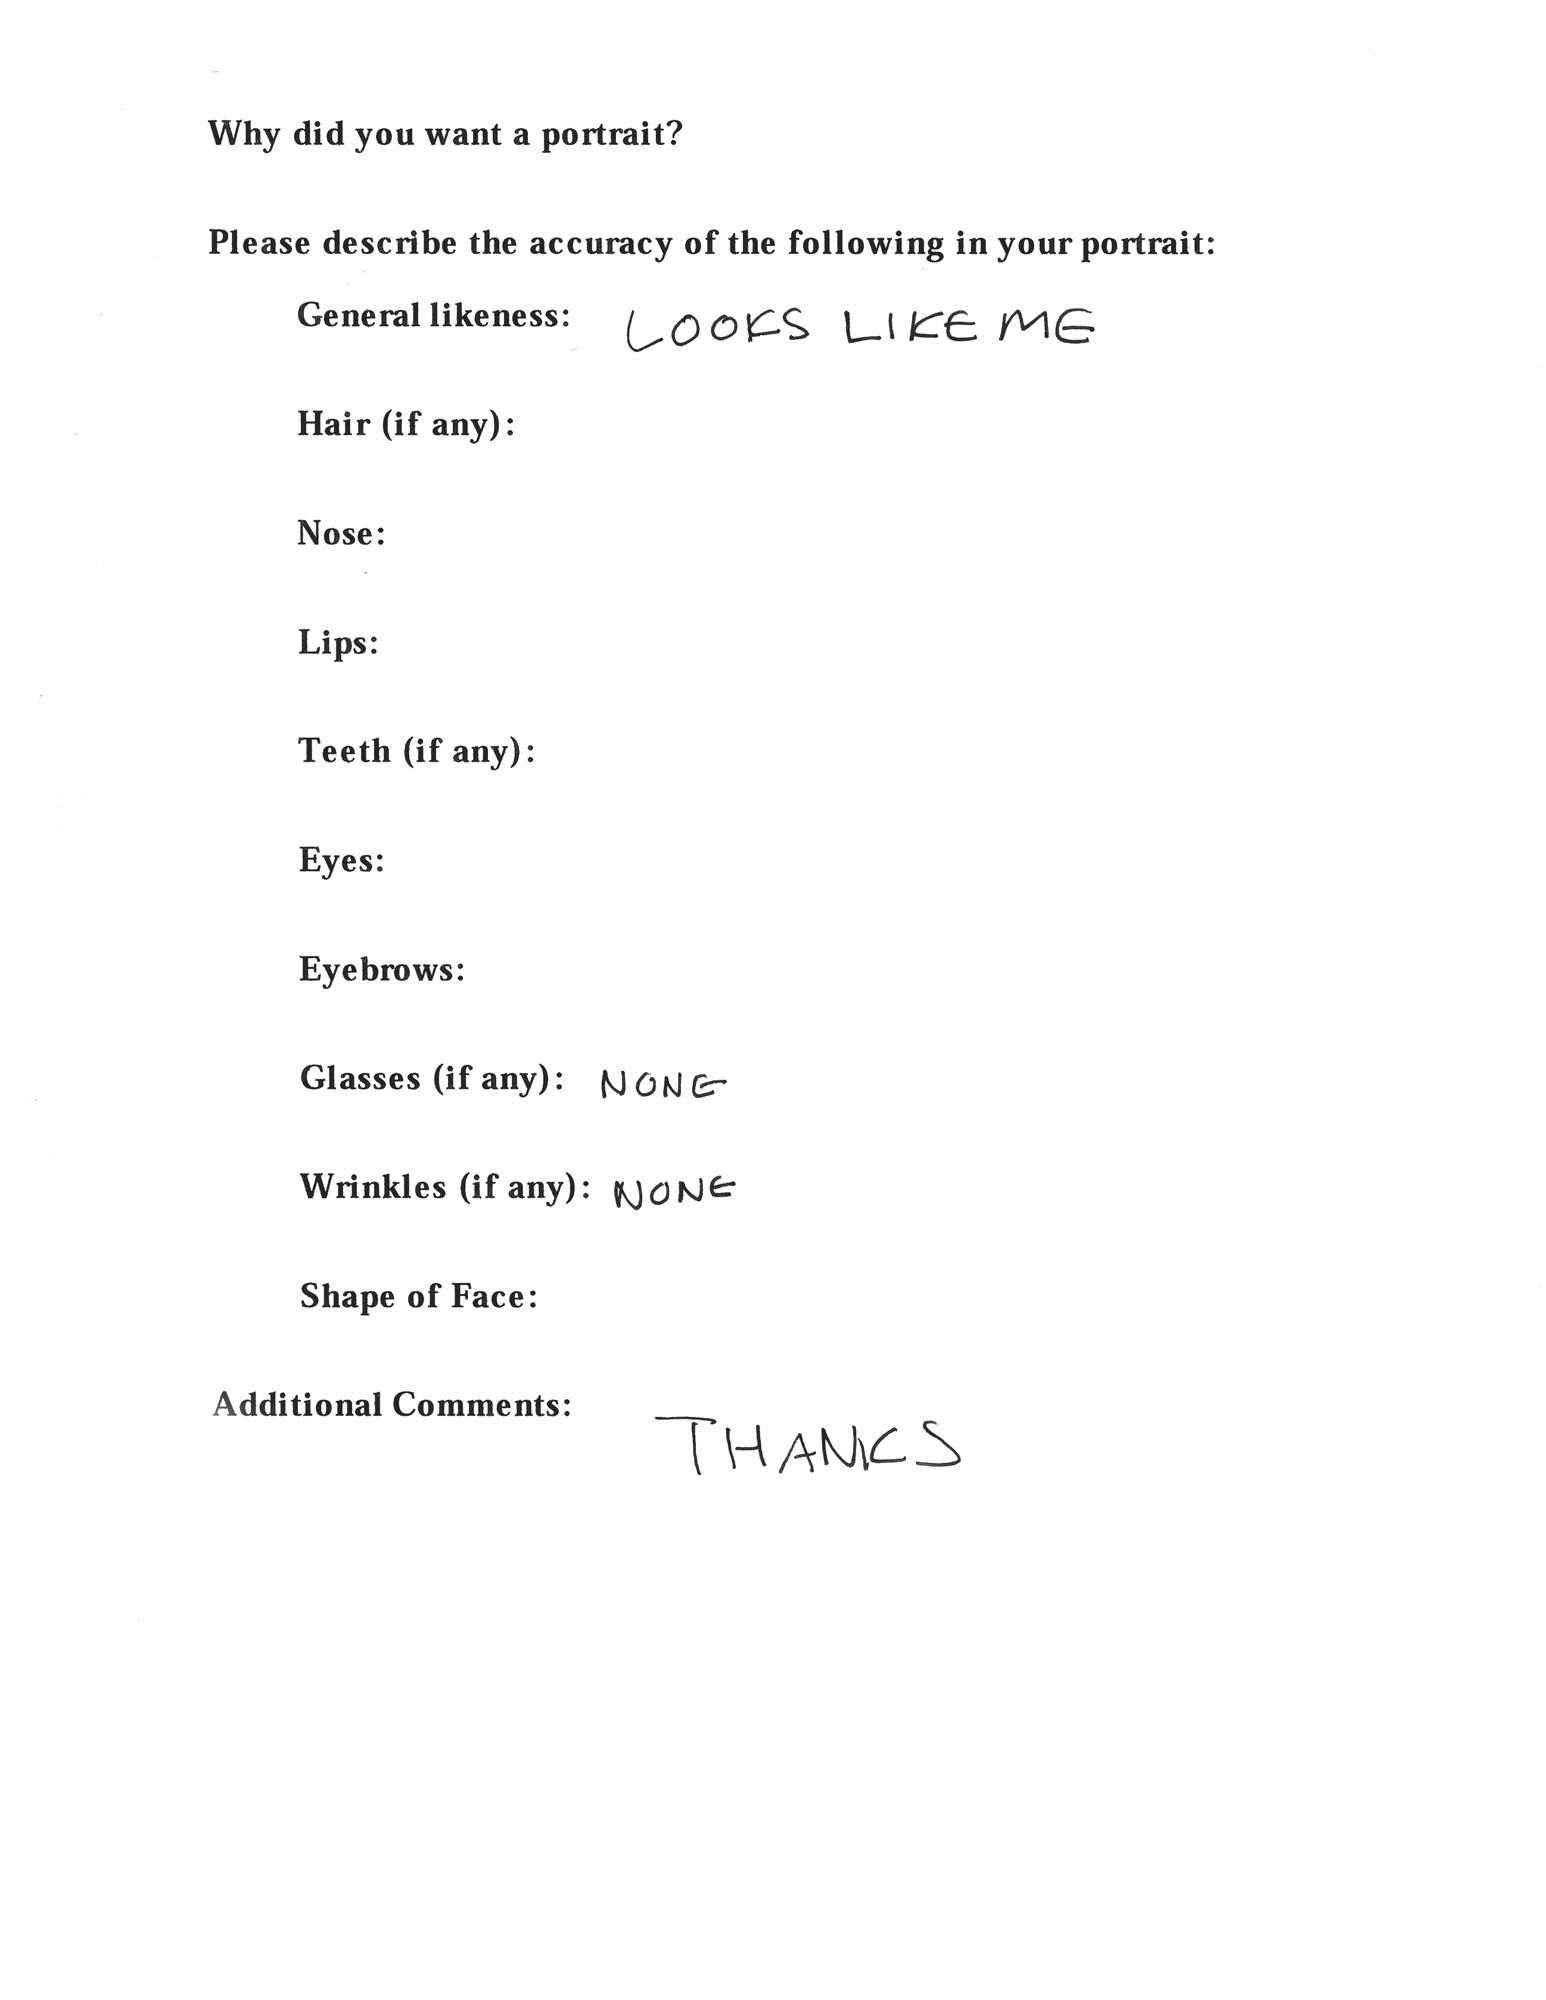 Why did you want a portrait?
Please describe the accuracy of the following in your portrait:
General likeness: LOOKS LIKE ME
Hair (if any):
Nose:
Lips:
Teeth (if any):
Eyes:
Eyebrows:
Glasses (if any): NONE
Wrinkles (if any): NONE
Shape of Face:
Additional Comments:
THANKS